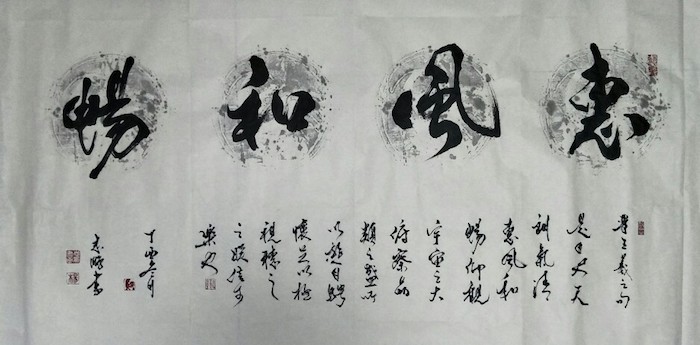 惠風和暢
王羲之句
是日也天
朗氣清
惠風和
暢仰觀
宇宙之大
俯察品
類之盛所
以遊目騁
懷足以極
視聽之
之娛信可
樂也
丁酉月
書